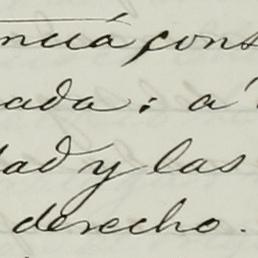 ncia cons
ada: a
dad y las
derecho.